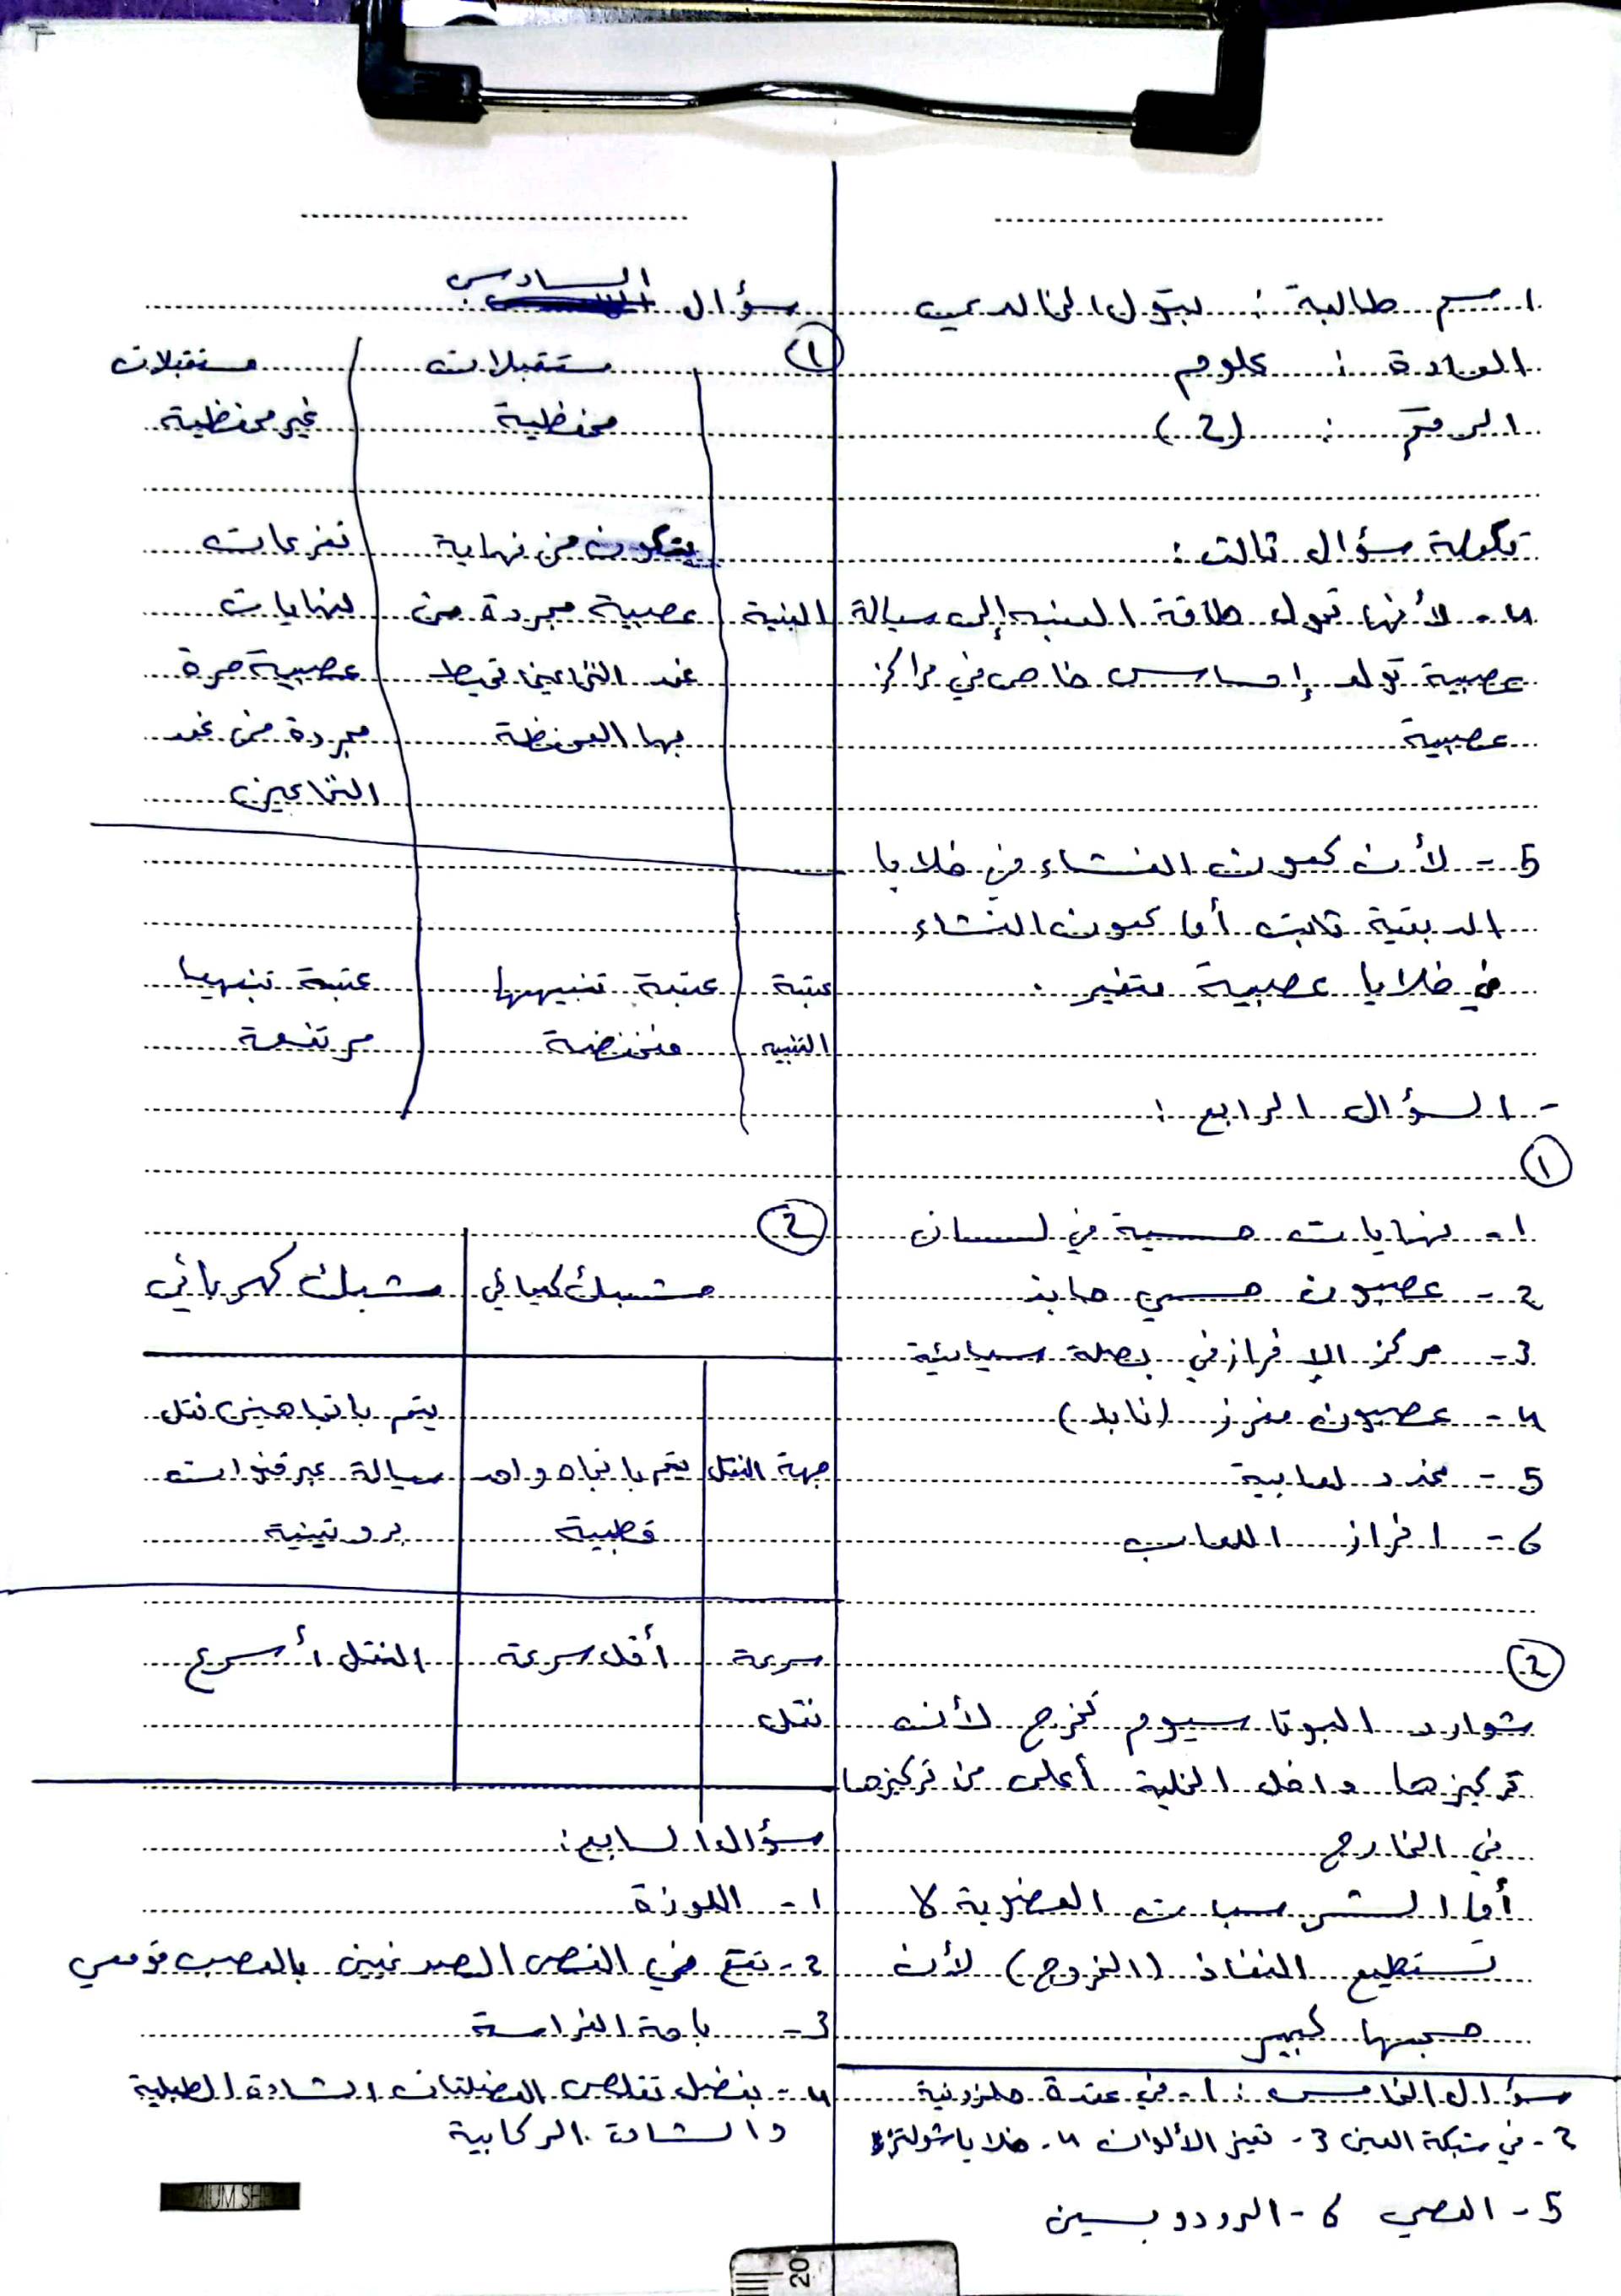 اسم طالبة : بتول الخالدي
المادة : علوم
الرقم : (2)
تكملة سؤال ثالث :
4- لأنها تحول طاقة المنبه إلى سيالة
عصبية تولد إحساس خاص في مراكز
عصبية
5- لأن كمون الغشاء في خلايا
الدبقية ثابت أما كمون الغشاء
في خلايا عصبية متغير .
- السؤال الرابع :
1
1- نهايات حسية في لسان
2- عصبون حسي جابذ
3- مركز الإفراز في بصلة سيسائية
4- عصبون مفرز (نابذ)
5- غدد لعابية
6- افراز اللعاب
2
شوارد البوتاسيوم تخرج لأن
تركيزها داخل الخلية أعلى من تركيزها
في الخارج
أما الشرسبات العضوية لا
تستطيع النفاذ (الخروج) لأن
حجمها كبير
سؤال الخامس : 1- في عقدة حلزونية
2- في شبكة العين 3- تميز الألوان 4- خلايا شولتز
5- العصي 6- الرودوبسين
سؤال السادس
1
مستقبلات مستقبلات
محفظية غير محفظية
يتكون من نهاية تفرعات
البنية عصبية مجردة من لنهايات
غمد النخاعين تحيط عصبية حرة
بها المحفظة مجردة من غمد
النخاعين
عتبة عتبة تنبيهها عتبة تنبيهها
التنبيه منخفضة مرتفعة
2
مشبك كيميائي مشبك كهربائي
يتم باتجاهين نقل
جهة النقل يتم باتجاه واحد سيالة عبر قنوات
قطبية بروتينية
سرعة أقل سرعة النقل أسرع
نقل
سؤال السابع :
1- اللوزة
2- تقع في الفصين الصدغيين بالعصب قوقعي
3- باحة الفراسة
4- بفضل تقلص العضلتان الشادة الطبلية
والشادة الركابية
20